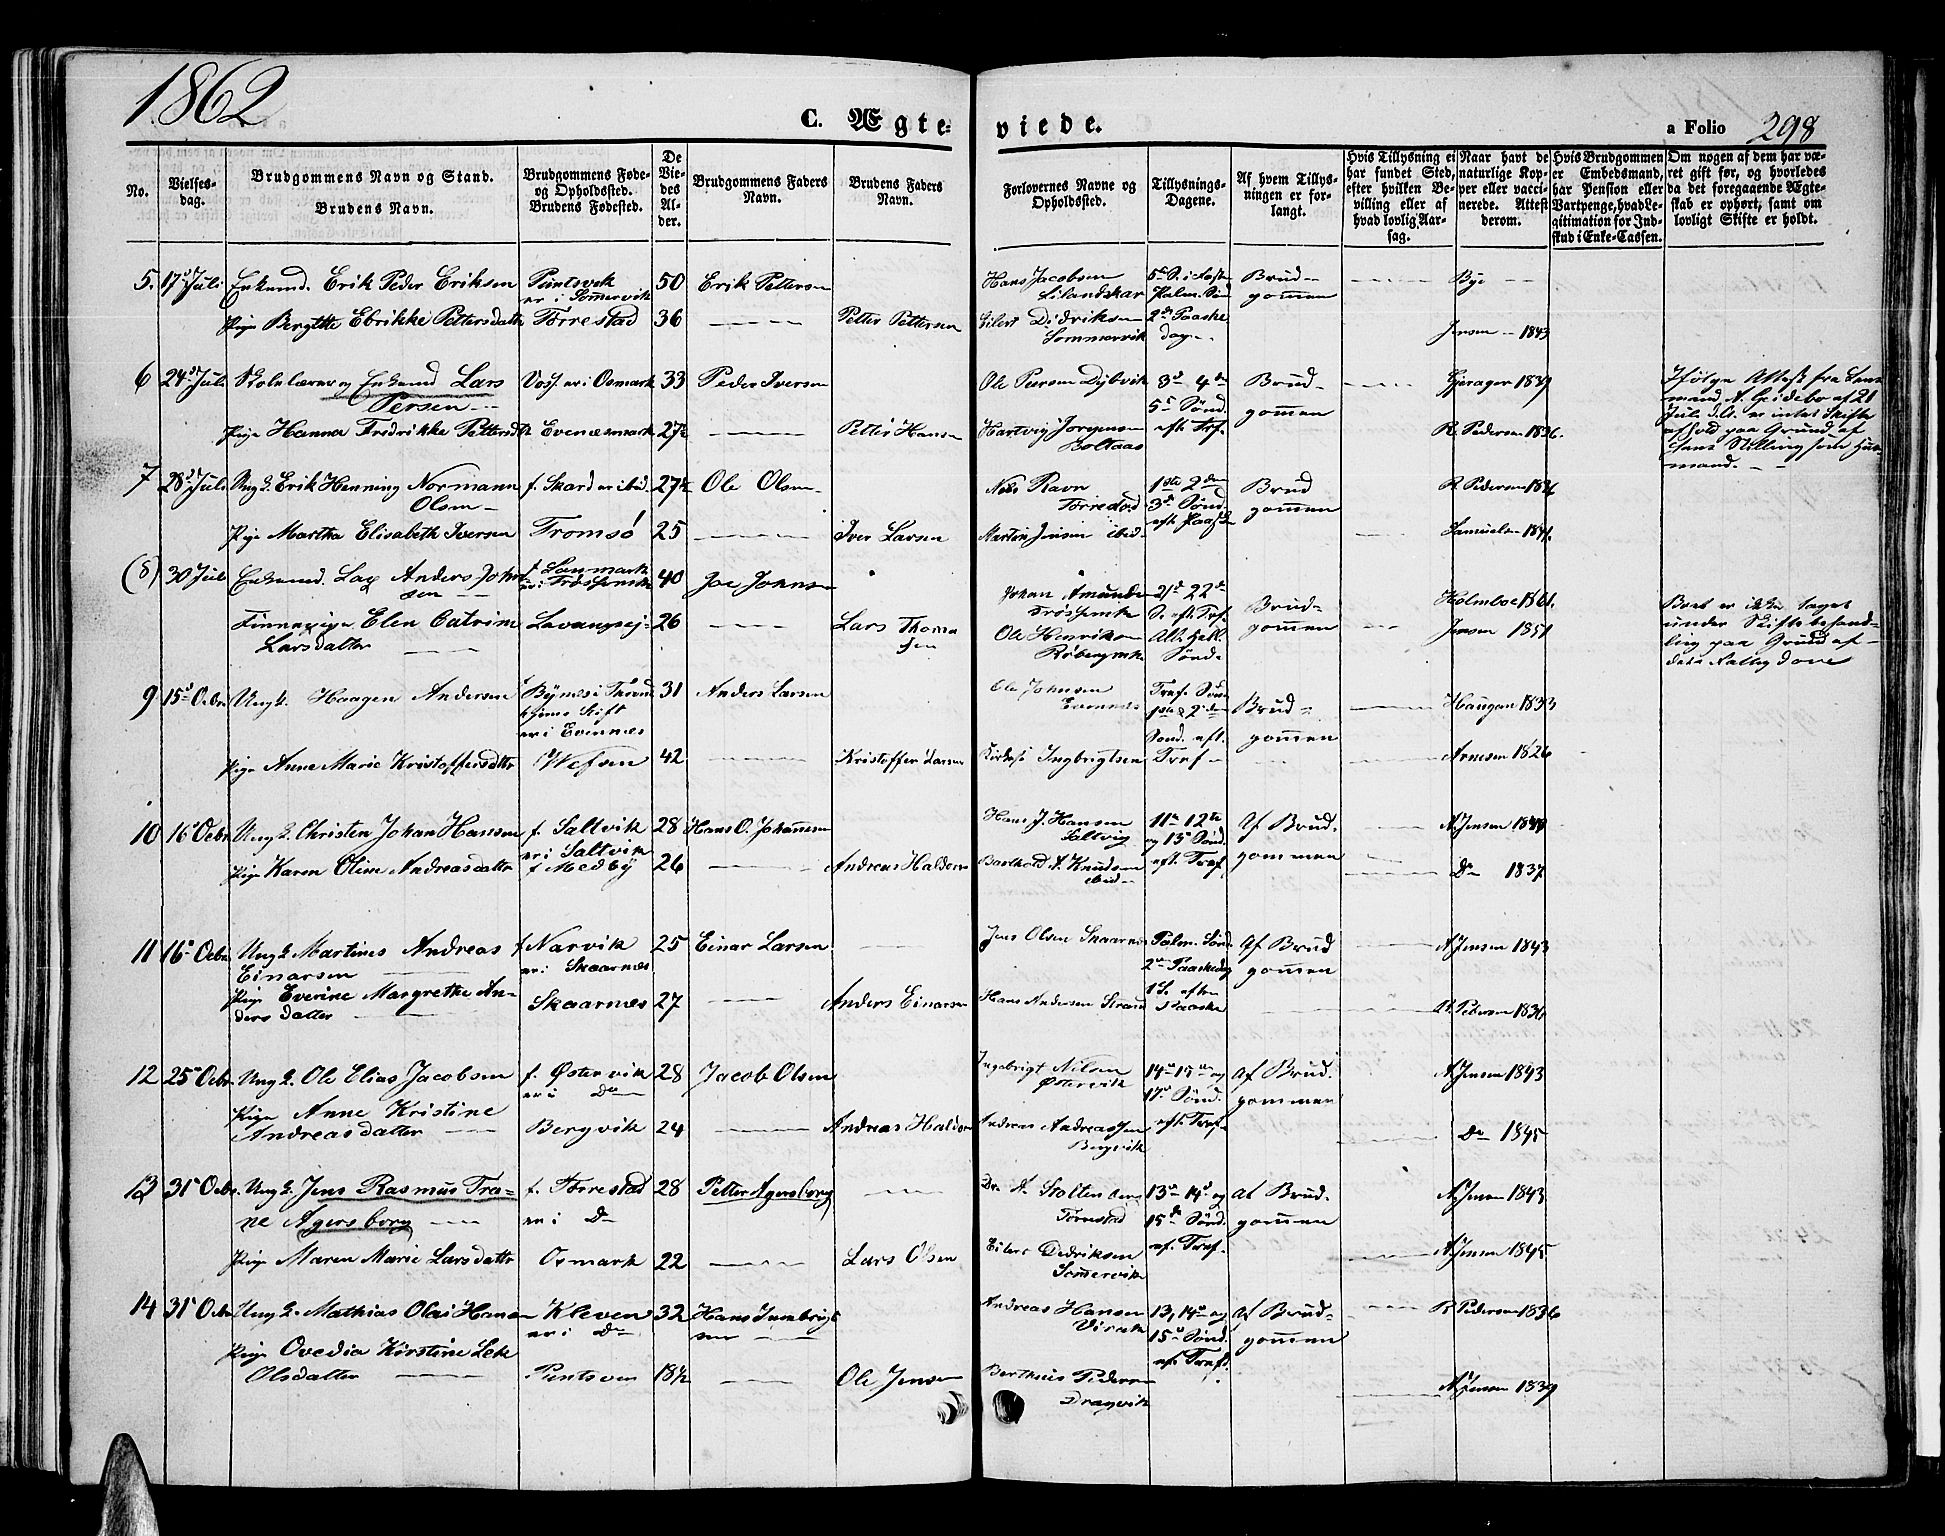 1862
C. Ægte-
viede.
a Folio 298
No.
Vielses-
dag.
Brudgommens Navn og Stand.
Brudens Navn.
Brudgommens Føde-
og Opholdssted.
Brudens Fødested.
De
Vie-
des
Al-
der.
Brudgommens Faders
Navn.
Brudens Faders
Navn.
Forlovernes Navne og
Opholdssted.
Tillysnings-
Dagene.
Af hvem Tillys-
ningen er for-
langt.
Hvis Tillysning ei
har fundet Sted,
efter hvilken Be-
villing eller af
hvad lovlig Aar-
sag.
Naar havt de
naturlige Kop-
per eller vacci-
nerede. Attest
derom.
Hvis Brudgommen
er Embedsmand,
har Pension eller
Vartpenge, hvad Le-
gitimation for Ind-
skud i Enke-Cassen.
Om nogen af dem har væ-
ret gift før, og hvorledes
da det foregaaende Ægte-
skab er ophørt, samt om
lovligt Skifte er holdt.
5. 17 Juli Enkemd. Erik Peder Eriksen
er i Sommervik 50 Erik Pettersen
Hans Jacobsen
Palm. Søn
Brud-
gommen
Pige Bergitte Pettersdatter Torrestad 36 Petter Pettersen
Eilert Didriksen
Sommervik
2den Paaske
dag
Jensen 1843
6 24 Juli Skolelærer og Enkemd Lars
Persen
Voss. er i Osmark 33 Peder Iversen
Ole Dybvik 3d 4de
5te Sønd.
eft. Trf.
Brud-
gommen
Gjerager 1837
Ifølge Attest fra
mand af 21
Juli d.A. er intet Skifte
afhold paa Grund af
hans Stilling som Hus-
mand.
Pige Hanna Fredrikke Pettersdtr Evenæsmark 27½ Petter Hansen
Hartvig Jørgensen
Boltaas
R. Pedersen 1836.
7 28 Juli Ungk. Erik Henning Normann
Olsen
f. Skard er ibid. 27½ Ole Olsen
Nils Ravn
1ste 2den
3de Sønd.
eft. Paaske
Brud
gommen
R. Pedersen 1836
Pige Martha Elisabeth Iversen Tromsø 25 Iver Larsen
Martin Jensen ibid.
1841
(8) 30 Juli Enkemd. Lap Anders John
sen
40 Joe Johnsen
Johan
21de 22de
S. eft. Trf.
Brud-
gommen
Holmboe 1861.
Boet er ikke taget
under Skiftebehand-
ling paa Grund af
dets Fattigdom
Finnepige Elen Catrine
Larsdatter
26 Lars Thomas
sen
Ole Henriksen
Alle Hell.
Sønd.
Jensen 1851
9 15d Octbr. Ungk. Haagen Andersen
Bynes i Trond
hjems Stift
er i Evenæs
31 Anders Larsen
Ole Johnsen
Evenæs
Tref. Sønd.
1ste & 2den
Sønd. eft.
Tref
Brud-
gommen
Haugan 1833
Pige Anne Marie Kristoffersdattr Wefsen 42 Kristoffer Larsen
Ingbrigtsen
Arnesen 1826
10 16 Octbr. Ungk. Christen Johan Hansen
f. Saltvik
er i Saltvik
28 Hans O. Johansen
Hans J. Hansen
Saltvig
11te 12te
og 13de Sønd.
eft. Tref.
Af Brud-
gommen
A. Jensen
Pige Karen Oline Andreasdattr
f Medby 26 Andreas Haldors
Barthold A. Knudsen
ibid
Do 1837
11 16 Octbr. Ungk. Martines Andreas
Einarsen
f Narvik
er i Skaarnæs
25 Einar Larsen
Jens Olsen Skaarnæs
Palm. Sønd.
2den Paaskedag
1 S. efter
Paaske
Af Brud
gommen
A. Jensen 1843
Pige Everine Margrethe An-
ders datter
Skaarnæs 27 Anders Einarsen
Hans Andersen Strand
R. Pedersen 1836
12 25 Octbr. Ungk. Ole Elias Jacobsen
f. Østervik
er i Do
28 Jacob Olsen
Ingebrigt Nilsen
Østervik
14de 15de og
17de Sønd.
eft. Tref
Af Brud-
gommen
A. Jensen 1843
Pige Anne Kristine
Andreasdatter
Bergvik 24 Andreas Haldor
Andreas Andreassen
Bergvik
Do 1845
13 31 Octbr. Ungk. Jens Rasmus Tra-
ne Agersborg
f. Torrestad
er i Do
28 Petter Agersborg
A. Stoltenberg
Torrestad
13de 14de og
15de Sønd.
ef. Tref.
Af Brud-
gommen
A. Jensen 1843
Pige Maren Marie Larsdattr Osmark 22 Lars Olsen
Eilert Dedriksen
Sommervik
A. Jensen 1845
14 31 Octbr. Ungk. Mathias Olai Hansen
Kleven
er i Do
32 Hans Ingebrigt
sen
Andreas Hansen
13, 14de og
15de Sønd.
ef. Tref.
Af Brud-
gommen
R. Pedersen 1836
Pige Ovedia Kirstine
Olsdatter
18½ Ole Jensen
Bertheus Pedersen
Dragvik
A. Jensen 1839